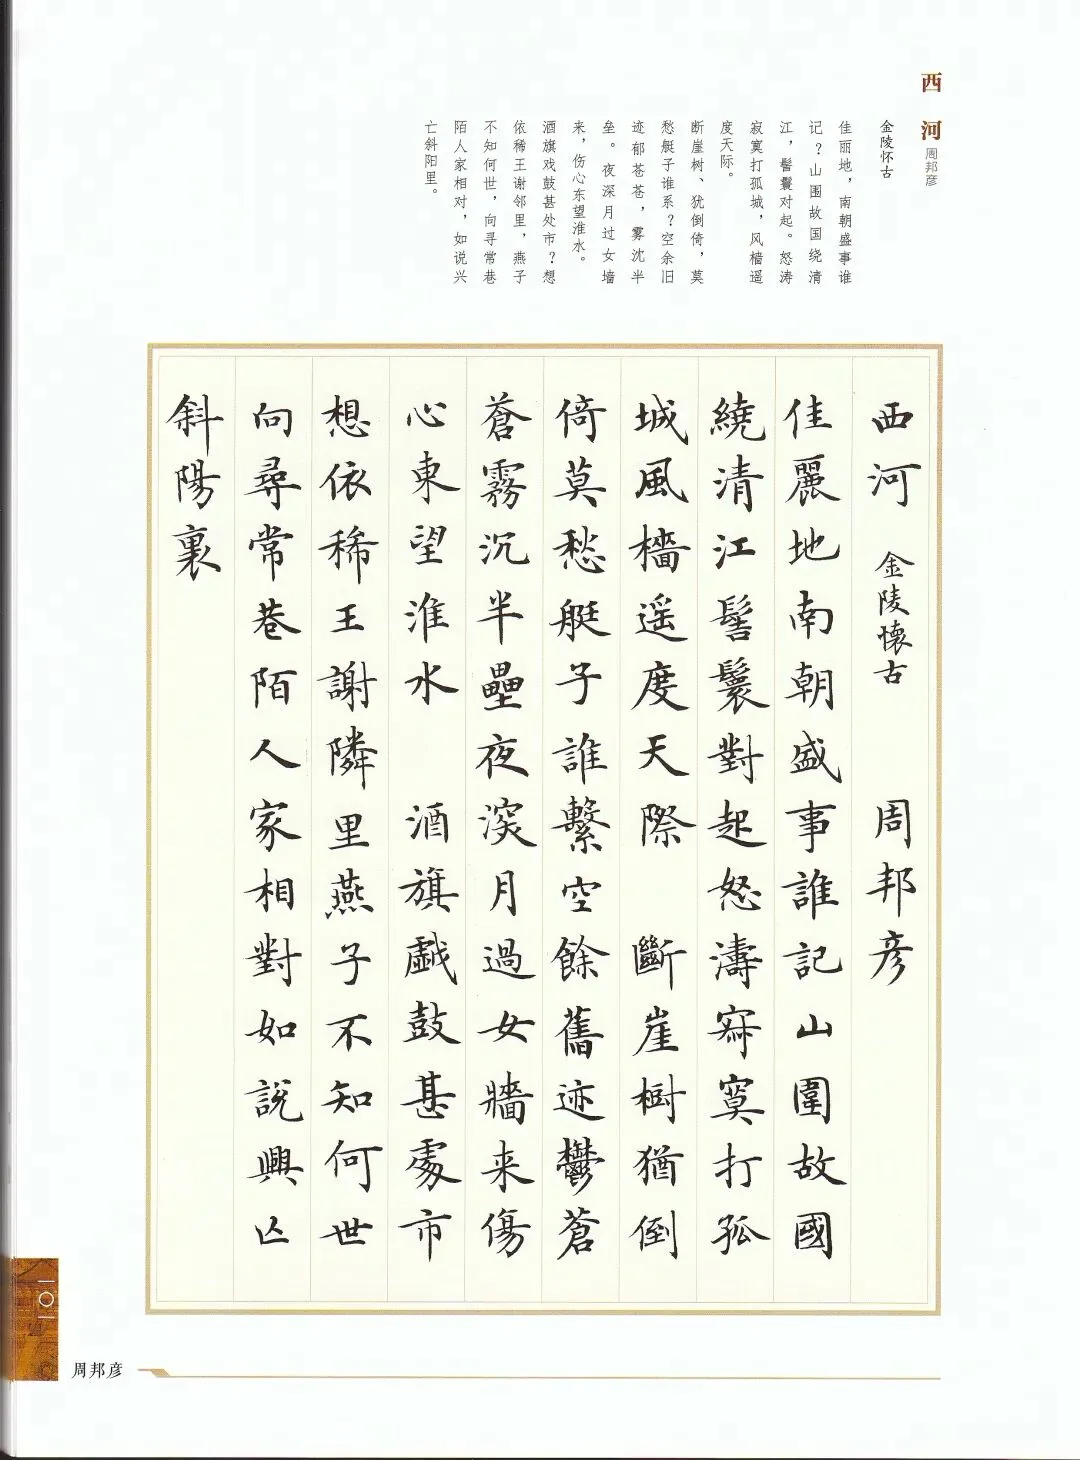 西河
周邦彦
金陵怀古
佳丽地，南朝盛事谁
记？山围故国绕清
江，髻鬟对起。怒涛
寂寞打孤城，风樯遥
度天际。
断崖树、犹倒倚，莫
愁艇子谁系？空余旧
迹郁苍苍，雾沈半
垒。夜深月过女墙
来，伤心东望淮水。
酒旗戏鼓甚处市？想
依稀王谢邻里，燕子
不知何世，向寻常巷
陌人家相对，如说兴
亡斜阳里。
西河 金陵懷古 周邦彦
佳麗地南朝盛事誰記山圍故國
繞清江髻鬟對起怒濤寂寞打孤
城風檣遥度天際 斷崖樹猶倒
倚莫愁艇子誰繫空餘舊迹鬱蒼
蒼霧沉半壘夜深月過女牆来傷
心東望淮水 酒旗戲鼓甚處市
想依稀王謝隣里燕子不知何世
向尋常巷陌人家相對如說興亡
斜陽裏
一〇一
周邦彦